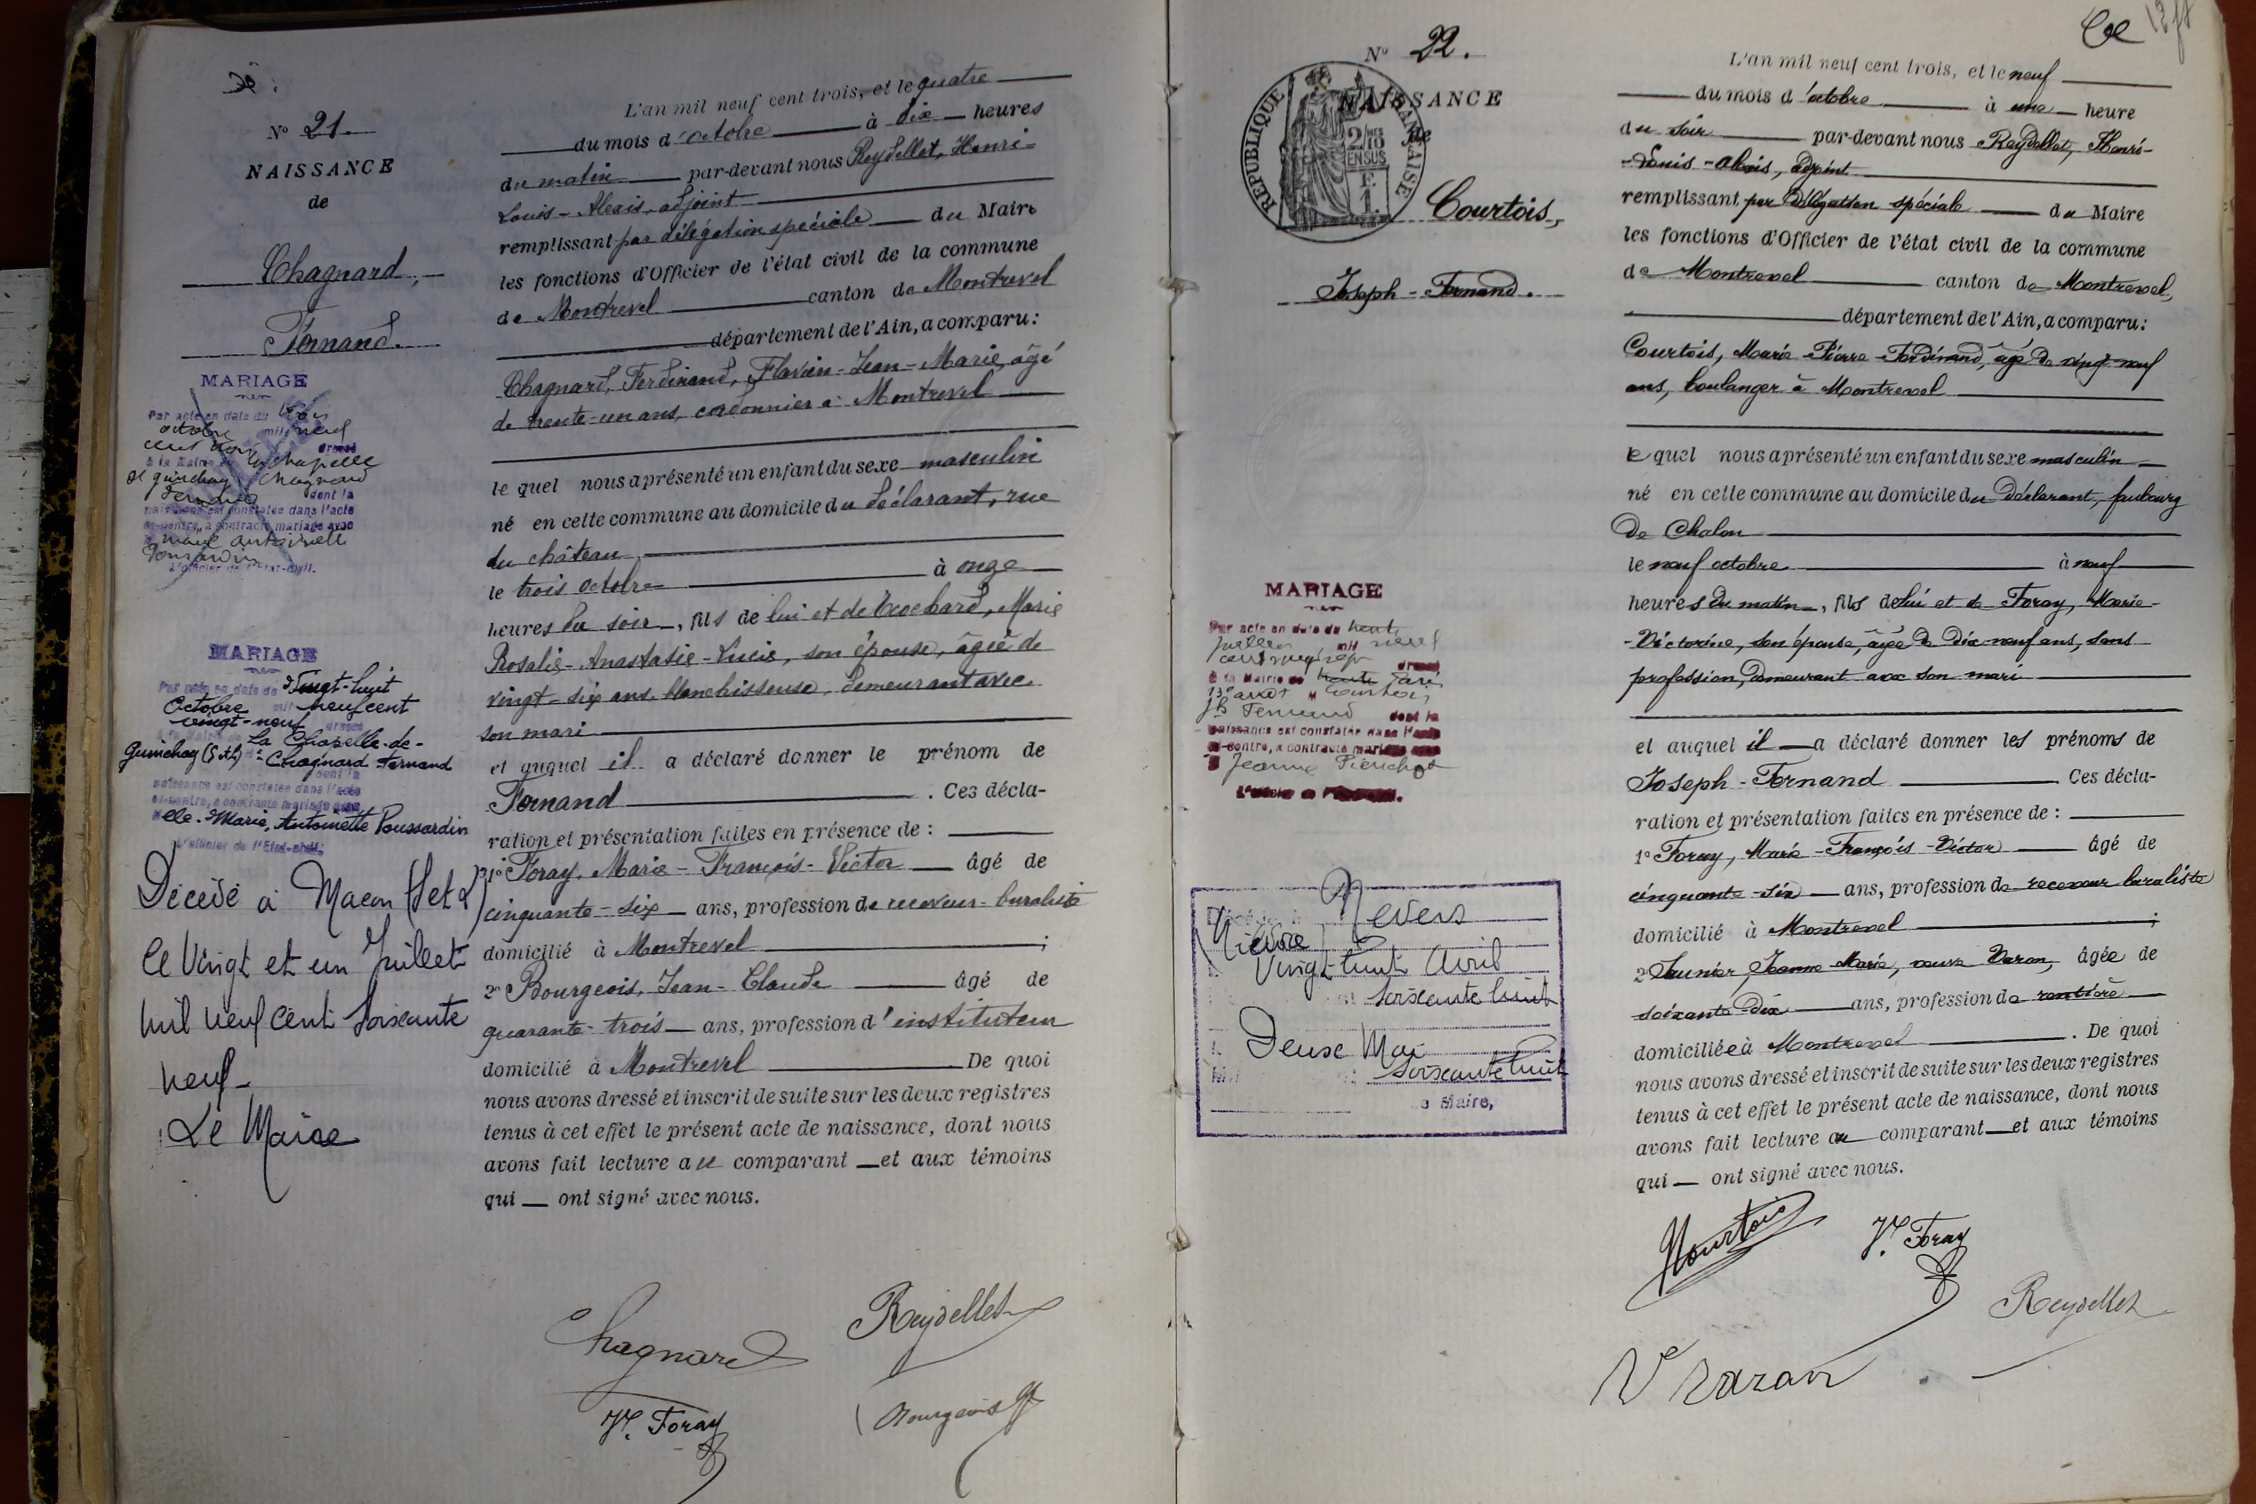 Dé :
N° 21.
NAISSANCE
de
Chagnard,
Fernand.
MARIAGE
Par acte en date du trois
octobre mil neuf
cent dressé
à la Mairie de la Chapelle
de guinchay Chagnard
Fernand dont la
naissance est constatée dans l'acte
ci-contre, a contracté mariage avec
Marie Antoinette
L'officier de l'Etat-civil.
MARIAGE
Par acte en date du Vingt-huit
Octobre mil neuf cent
vingt-neuf dressé
à la Mairie de La Chapelle-de-
Guinchay (S.&L) Chagnard Fernand
dont la
naissance est constatée dans l'acte
ci-contre, a contracté mariage avec
elle. Marie, Antoinette Poussardin
L'officier de l'Etat-civil:
Décédé à Macon (S et L)
le Vingt et un Juillet
mil neuf cent soixante
neuf_
Le Maire
L'an mil neuf cent trois, et le quatre
du mois d'octobre à dix heures
du matin par-devant nous Reydellet, Henri-
Louis-Alexis, adjoint
remplissant par délégation spéciale du Maire
les fonctions d'Officier de l'état civil de la commune
de Montrevel canton de Montrevel
département de l'Ain, a comparu:
Chagnard, Ferdinand, Flavien-Jean-Marie, âgé
de trente-un ans, cordonnier à Montrevel
le quel nous a présenté un enfant du sexe masculin
né en cette commune au domicile du déclarant, rue
du château
le trois octobre à onze
heures du soir, fils de lui et de Brochard, Marie
Rosalie-Anastasie-Lucie, son épouse, âgée de
vingt-six ans, blanchisseuse, demeurant avec
son mari
et auquel il a déclaré donner le prénom de
Fernand . Ces décla-
ration et présentation faites en présence de :
1° Foray, Marie-François-Victor âgé de
cinquante-six ans, profession de receveur-buraliste
domicilié à Montrevel ;
2° Bourgeois, Jean-Claude âgé de
quarante-trois ans, profession d'instituteur
domicilié à Montrevel De quoi
nous avons dressé et inscrit de suite sur les deux registres
tenus à cet effet le présent acte de naissance, dont nous
avons fait lecture au comparant et aux témoins
qui ont signé avec nous.
Chagnard
Reydellet
Vr. Foray
Bourgeois
N° 22.
NAISSANCE
de
REPUBLIQUE FRANÇAISE
2/10 EN SUS
Courtois,
Joseph-Fernand.
MARIAGE
Par acte en date du trente
juillet mil neuf
cent vingt-sept dressé
à la Mairie de Paris
13e arrdt M Courtois,
Jh Fernand dont la
naissance est constatée dans l'acte
ci-contre, a contracté mariage avec
Jeanne Pierichot
L'officier de l'Etat-civil.
Nevers
(Nièvre)
Vingt huit Avril
soixante huit
Deux Mai
soixante huit
Le Maire,
L'an mil neuf cent trois, et le neuf
du mois d'octobre à une heure
du soir par-devant nous Reydellet, Henri-
-Louis-Alexis, adjoint
remplissant par délégation spéciale du Maire
les fonctions d'Officier de l'état civil de la commune
de Montrevel canton de Montrevel,
département de l'Ain, a comparu:
Courtois, Marie-Pierre-Ferdinand, âgé de vingt-neuf
ans, boulanger à Montrevel
le quel nous a présenté un enfant du sexe masculin
né en cette commune au domicile du déclarant, faubourg
de Chalon
le neuf octobre à neuf
heures du matin, fils de lui et de Foray, Marie-
-Victorine, son épouse, âgée de dix-neuf ans, sans
profession, demeurant avec son mari
et auquel il a déclaré donner les prénoms de
Joseph-Fernand . Ces décla-
ration et présentation faites en présence de :
1° Foray, Marie-François-Victor âgé de
cinquante-six ans, profession de receveur buraliste
domicilié à Montrevel ;
2° Saunier, Jeanne-Marie, veuve Varan, âgée de
soixante-dix ans, profession de rentière
domiciliée à Montrevel . De quoi
nous avons dressé et inscrit de suite sur les deux registres
tenus à cet effet le présent acte de naissance, dont nous
avons fait lecture au comparant et aux témoins
qui ont signé avec nous.
Courtois
Vr. Foray
Reydellet
Ve Varan